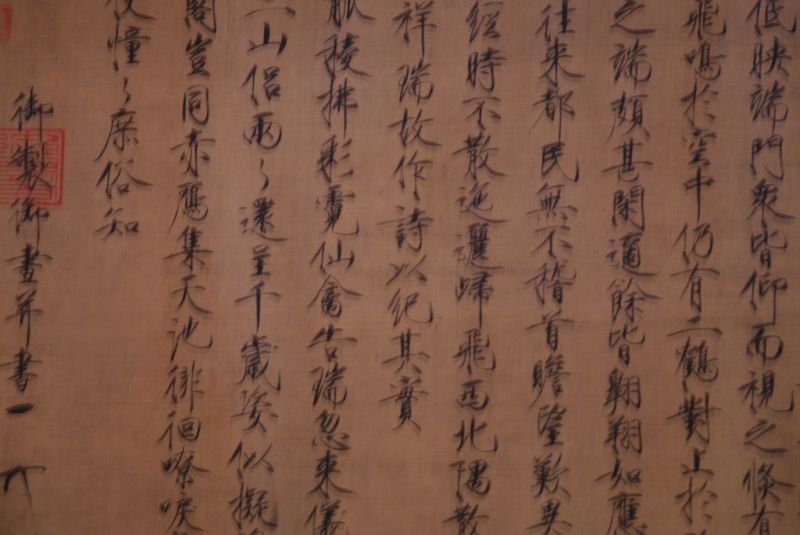 低映端門衆皆仰而視之倏有
飛鳴於空中仍有二鶴對止於
之端頗甚閑適餘皆翱翔如應
往来都民無不稽首瞻望歎異
經時不散迤邐歸飛西北隅散
祥瑞故作詩以紀其實
觚稜拂彩霓仙禽告瑞忽来儀
三山侶兩々還呈千歲姿似擬
閣豈同赤鴈集天池徘徊嘹唳
使憧々庶俗知
御製御畫并書